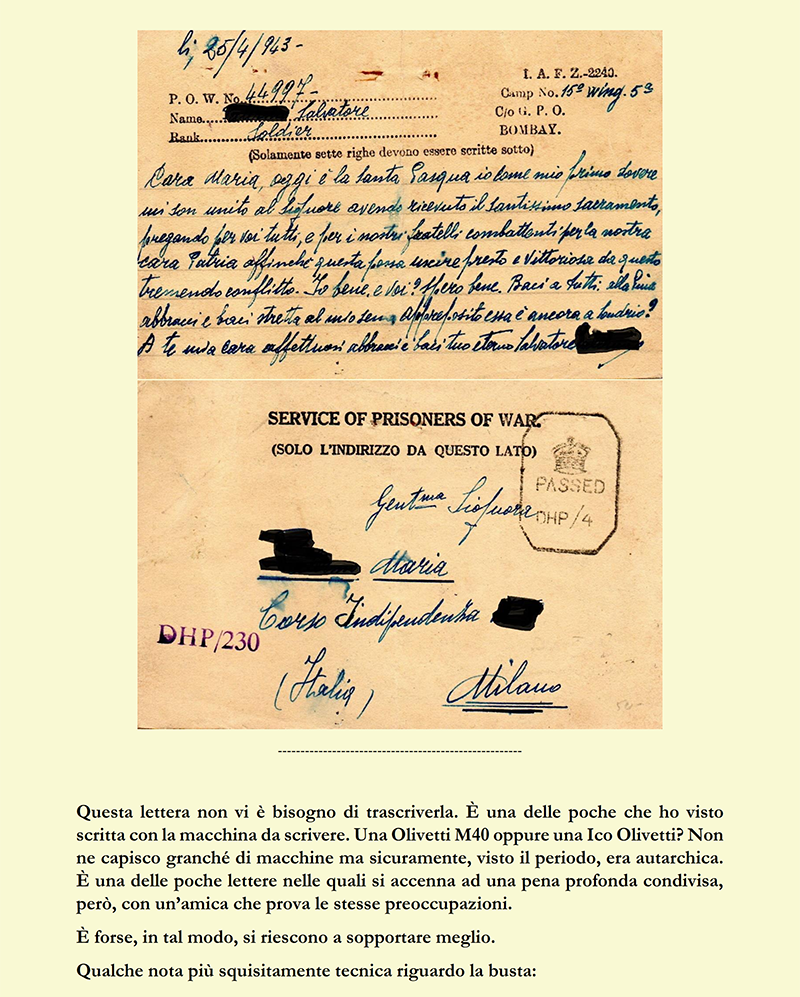 li, 25/4/943-
I. A. F. Z.-2240.
P. O. W. No. 44997-
Camp No. 15º wing. 5º
Name Salvatore
C/o G. P. O.
Rank Soldier
BOMBAY.
(Solamente sette righe devono essere scritte sotto)
Cara Maria, oggi è la Santa Pasqua io come mio primo dovere
mi son unito al Signore avendo ricevuto il santissimo sacramento,
pregando per voi tutti, e per i nostri fratelli combattenti per la nostra
cara Patria affinché questa possa uscire presto e vittoriosa da questo
tremendo conflitto. Io bene, e voi? Spero bene. Baci a tutti. alla
abbracci e baci stretta al mio seno. essa è ancora a
A te mia cara affettuosi abbracci e baci tuo eterno Salvatore
SERVICE OF PRISONERS OF WAR.
(SOLO L'INDIRIZZO DA QUESTO LATO)
PASSED
DHP/4
Gentma Signora
Maria
Corso Indipendenza
DHP/230
(Italia)
Milano
------------------------------------------------------
Questa lettera non vi è bisogno di trascriverla. È una delle poche che ho visto
scritta con la macchina da scrivere. Una Olivetti M40 oppure una Ico Olivetti? Non
ne capisco granché di macchine ma sicuramente, visto il periodo, era autarchica.
È una delle poche lettere nelle quali si accenna ad una pena profonda condivisa,
però, con un'amica che prova le stesse preoccupazioni.
È forse, in tal modo, si riescono a sopportare meglio.
Qualche nota più squisitamente tecnica riguardo la busta: